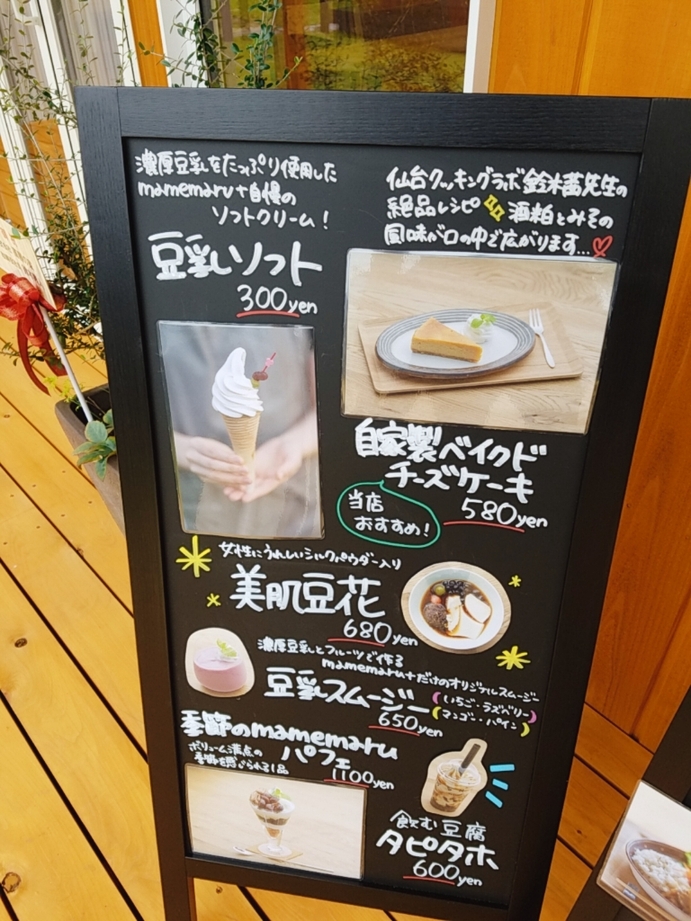 濃厚豆乳をたっぷり使用した
mamemaru+自慢の
ソフトクリーム！
豆乳ソフト
300yen
仙台クッキングラボ 鈴木茜先生の
絶品レシピ 酒粕とみその
風味が口の中で広がります…
自家製ベイクド
チーズケーキ
580yen
当店
おすすめ！
女性にうれしいシルクパウダー入り
美肌豆花
680yen
濃厚豆乳とフルーツで作る
mamemaru+だけのオリジナルスムージー
豆乳スムージー
(いちご・ラズベリー)
(マンゴー・パイン)
650yen
季節のmamemaru
パフェ
ボリューム満点の
季節を感じられる1品
1100yen
飲む豆腐
タピタホ
600yen